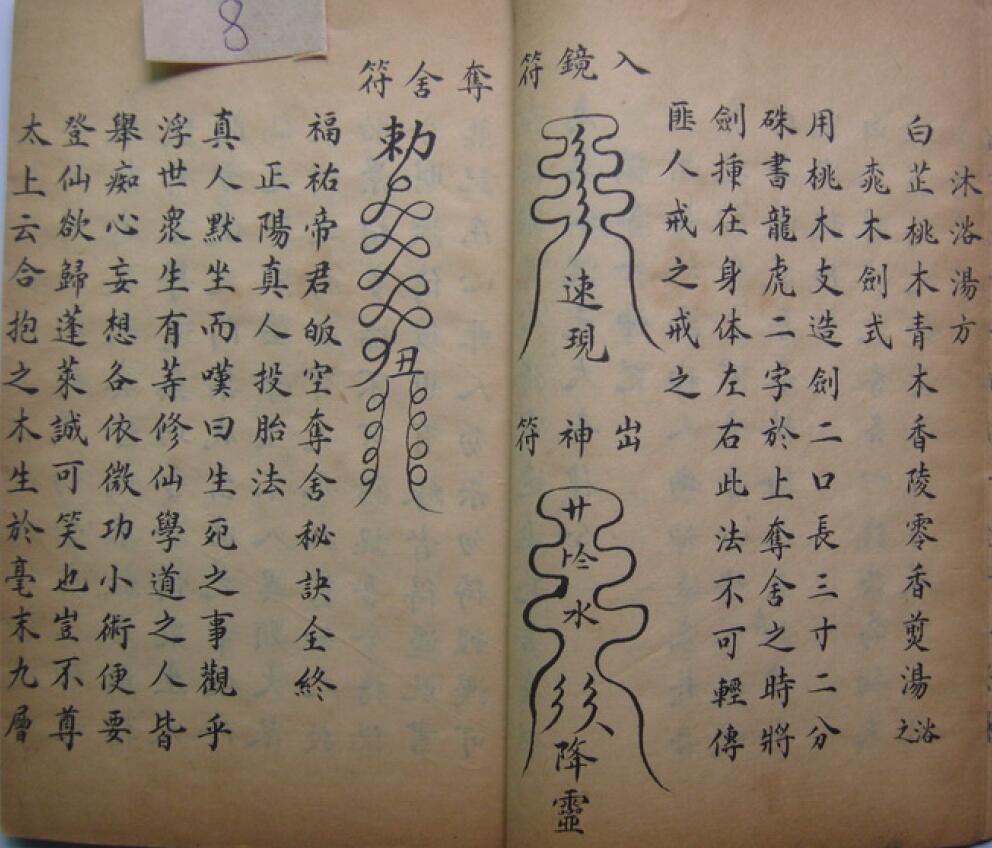 沐浴湯方
白芷桃木青木香陵零香煎湯浴之
桃木劍式
用桃木支造劍二口長三寸二分
硃書龍虎二字於上奪舍之時將
劍揷在身体左右此法不可輕傳
匪人戒之戒之
入鏡符
速現
出神符
水
降靈
奪舍符
勅
丑
福祐帝君皈空奪舍秘訣全終
正陽真人投胎法
真人默坐而嘆曰生死之事觀乎
浮世衆生有等修仙學道之人皆
舉痴心妄想各依微功小術便要
登仙欲歸蓬萊誠可笑也豈不尊
太上云合抱之木生於毫末九層
8